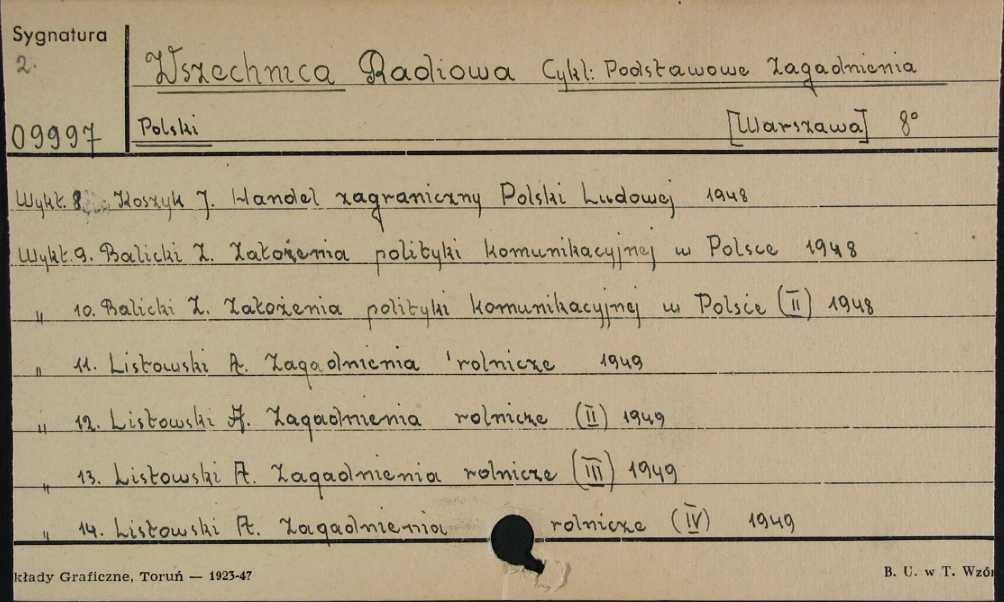 Sygnatura
2.
Wszechnica Radiowa Cykl: Podstawowe Zagadnienia
09997
Polski [Warszawa] 8°
Wykł. 8. Koszyk J. Handel zagraniczny Polski Ludowej 1948
Wykł. 9. Balicki Z. Założenia polityki komunikacyjnej w Polsce 1948
" 10. Balicki Z. Założenia polityki komunikacyjnej w Polsce (II) 1948
" 11. Listowski A. Zagadnienia rolnicze 1949
" 12. Listowski A. Zagadnienia rolnicze (II) 1949
" 13. Listowski A. Zagadnienia rolnicze (III) 1949
" 14. Listowski A. Zagadnienia rolnicze (IV) 1949
kłady Graficzne, Toruń — 1923-47 B. U. w T. Wzór